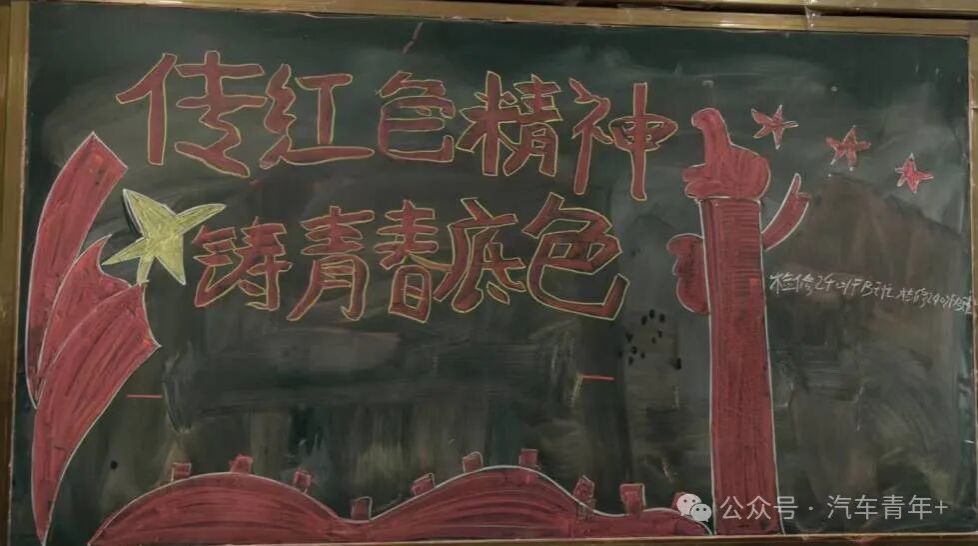 传红色精神
铸青春底色
检修2401FB班、检修2401FB班
公众号 · 汽车青年+